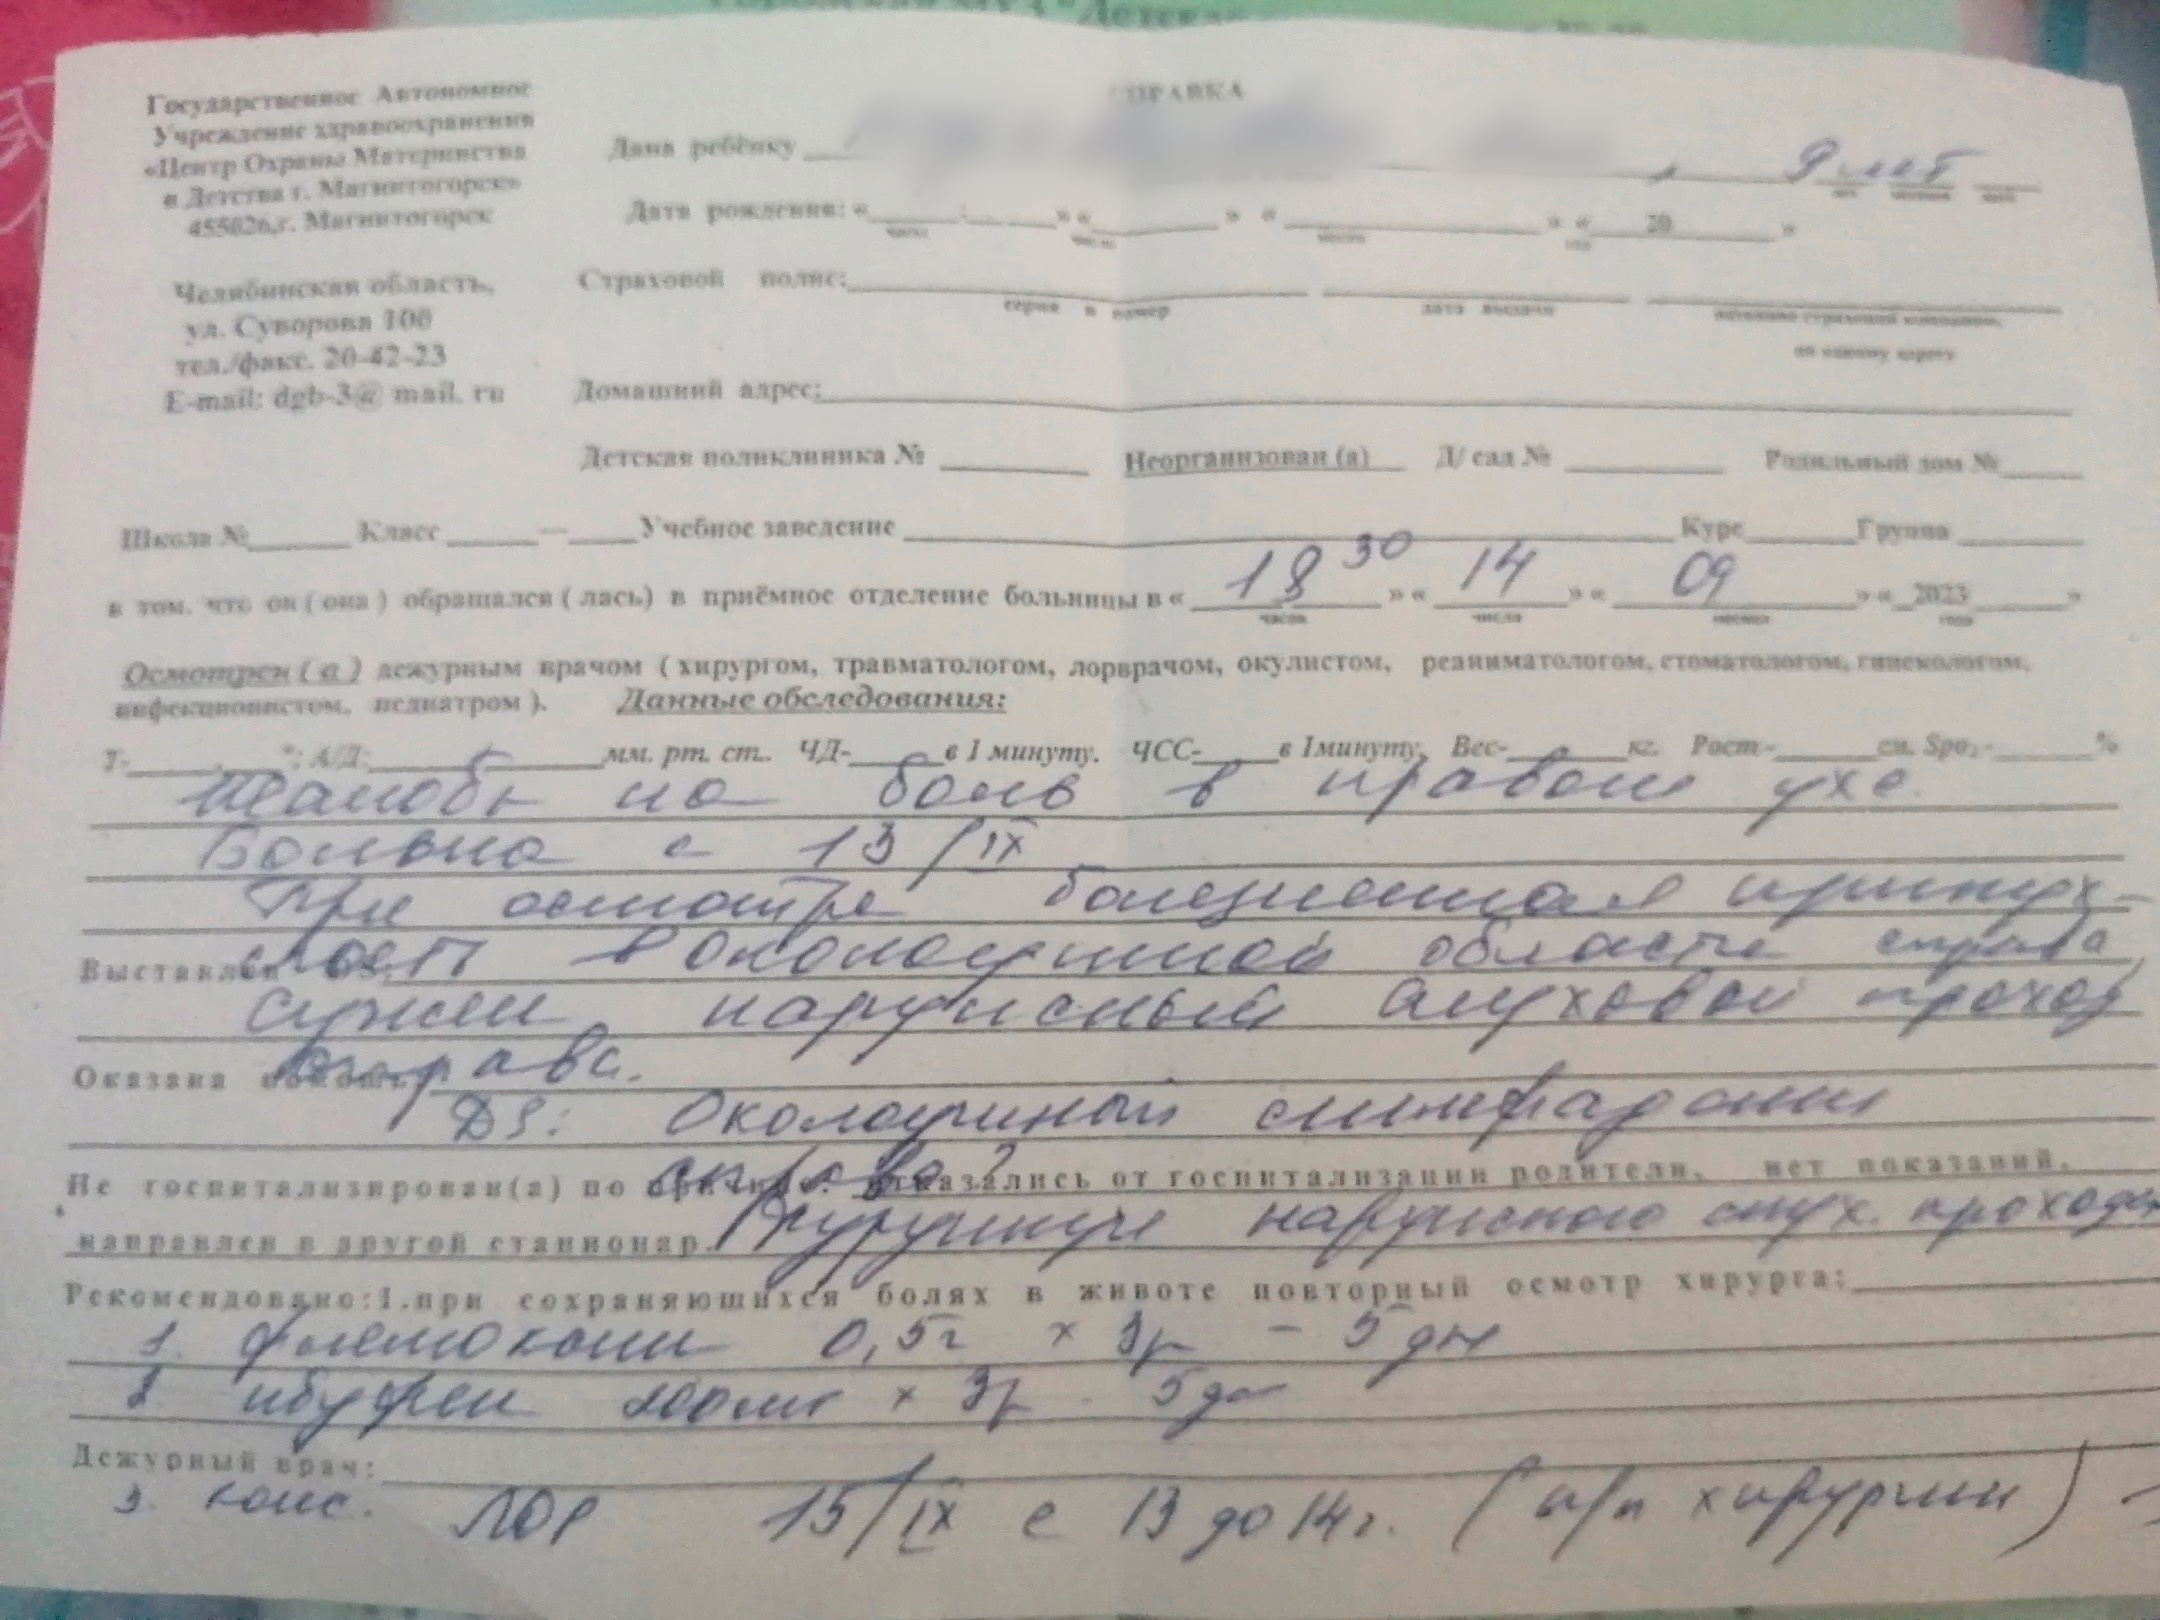 СПРАВКА
Государственное Автономное
Учреждение здравоохранения
«Центр Охраны Материнства
и Детства г. Магнитогорск»
455026,г. Магнитогорск
Челябинская область,
ул. Суворова 100
тел./факс. 20-42-23
E-mail: dgb-3@ mail. ru
Дана ребёнку 9 лет
Дата рождения: « : » « » « » « 20 »
часы число месяц год
Страховой полис:
серия и номер дата выдачи название страховой компании,
по какому адресу
Домашний адрес:
Детская поликлиника № Неорганизован (а) Д/ сад № Родильный дом №
Школа № Класс — Учебное заведение Курс Группа
в том. что он ( она ) обращался ( лась) в приёмное отделение больницы в « 18 30 » « 14 » « 09 » « 2023 »
часов числа месяца года
Осмотрен ( а ) дежурным врачом ( хирургом, травматологом, лорврачом, окулистом, реаниматологом, стоматологом, гинекологом,
инфекционистом, педиатром ). Данные обследования:
Т- °; А/Д: мм. рт. ст. ЧД- в 1 минуту. ЧСС- в 1минуту, Вес- кг. Рост- см. Spo₂- %
Жалобы на боль в правом ухе
Больна с 13/IX
При осмотре болезненная припух-
Выставлен ность в околоушной области справа,
Сужен наружный слуховой проход
Оказана помощь: справа.
DS: Околоушный лимфаденит
Не госпитализирован(а) по причине: отказались от госпитализации родители, нет показаний,
справа?
направлен в другой стационар. Фурункул наружного слух. прохода
Рекомендовано:1.при сохраняющихся болях в животе повторный осмотр хирурга:
1. флемоксин 0,5г х 3р – 5 дн
2. ибуфен 200мг х 3р - 5 дн
Дежурный врач:
3. конс. ЛОР 15/IX с 13 до 14 г. (п/п хирургии)